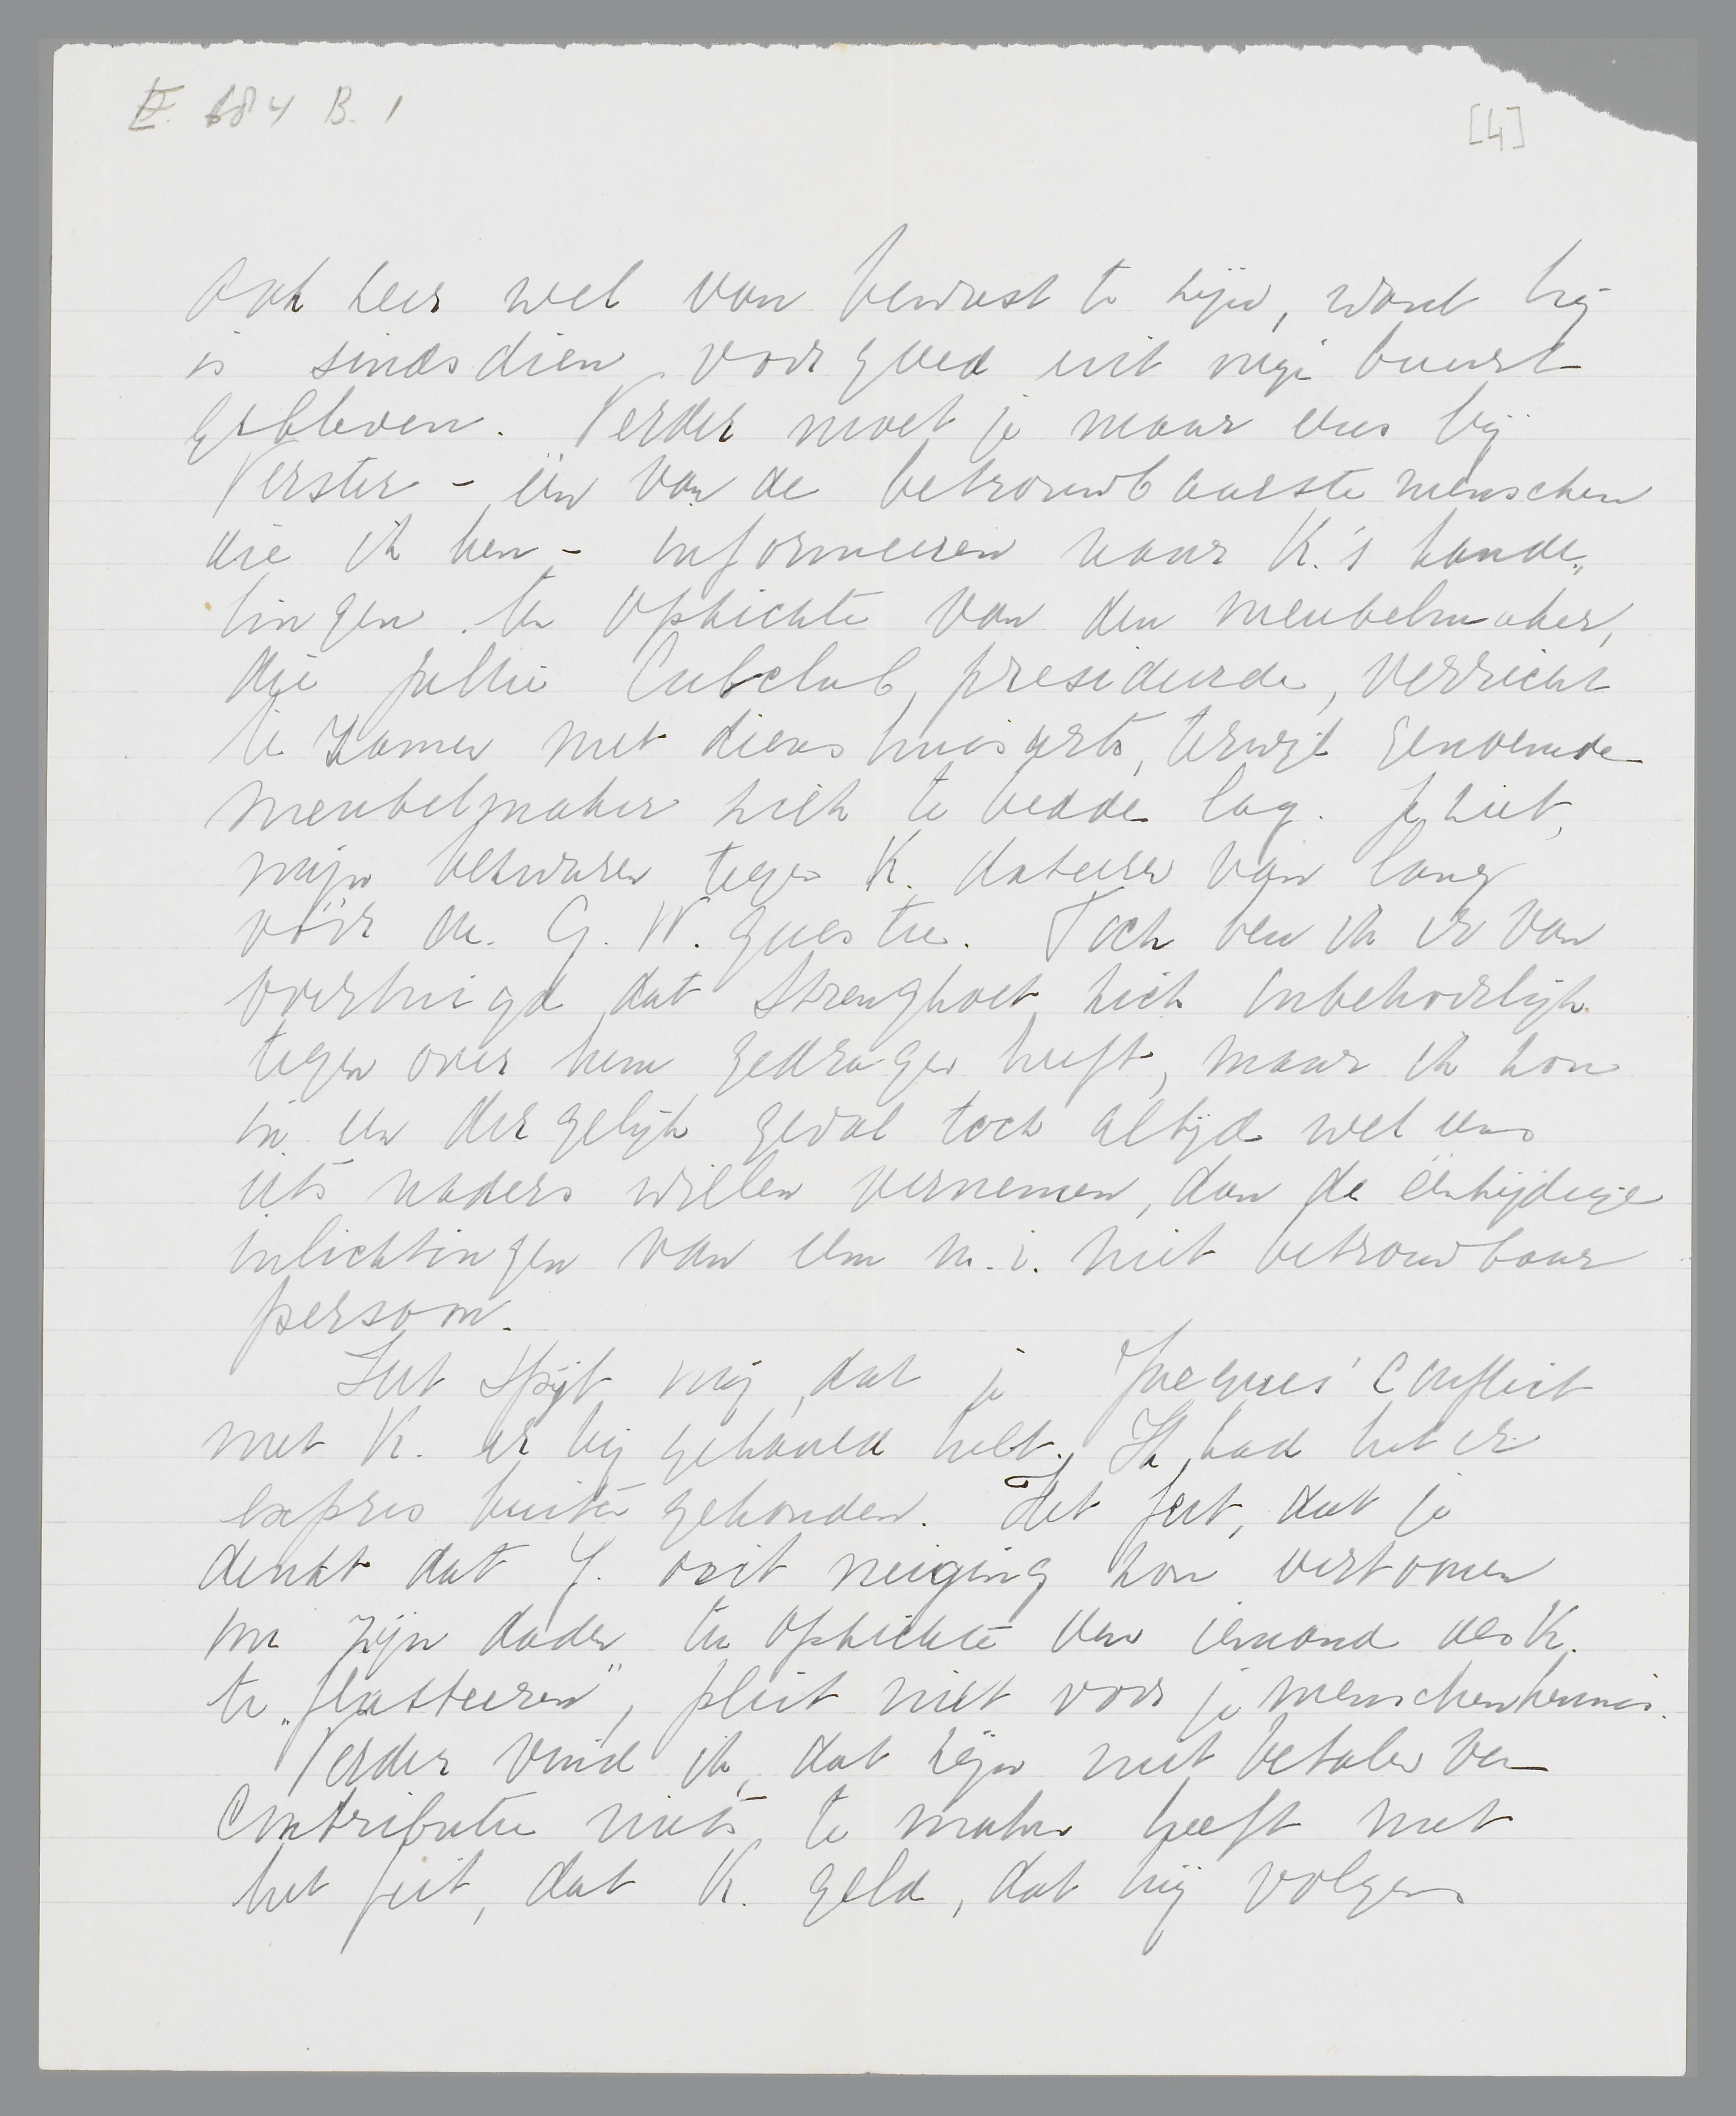 E. 684 B. 1
[4]
ook zeer wel van bewust te zijn, want hij
is sindsdien voor goed uit mijn buurt
gebleven. Verder moet je maar eens bij
Verster – één van de betrouwbaarste menschen
die ik ken – informeeren naar K.'s hande„
lingen ten opzichte van den meubelmaker,
die jullie Cubclub, presideerde, verricht
te zamen met diens huisarts, terwijl genoemde
meubelmaker ziek te bedde lag. Je ziet,
mijn bezwaren tegen K. dateeren van lang
vóór de G. W. questie. Toch ben ik er van
overtuigd dat Strengholt zich onbehoorlijk
tegen over hem gedragen heeft, maar ik zou
in een dergelijk geval toch altijd wel eens
iets naders willen vernemen, dan de éénzijdige
inlichtingen van een m.i. niet betrouwbaar
persoon.
Het spijt mij, dat je Jacques' conflict
met K. er bij gehaald hebt. Ik had het er
expres buiten gehouden. Het feit, dat je
denkt dat J. ooit neiging zou vertoonen
om zijn daden ten opzichte van iemand als K.
te „flatteeren", pleit niet voor je menschenkennis.
Verder vind ik, dat zijn niet betalen van
contributie niets te maken heeft met
het feit, dat K. geld, dat hij volgens